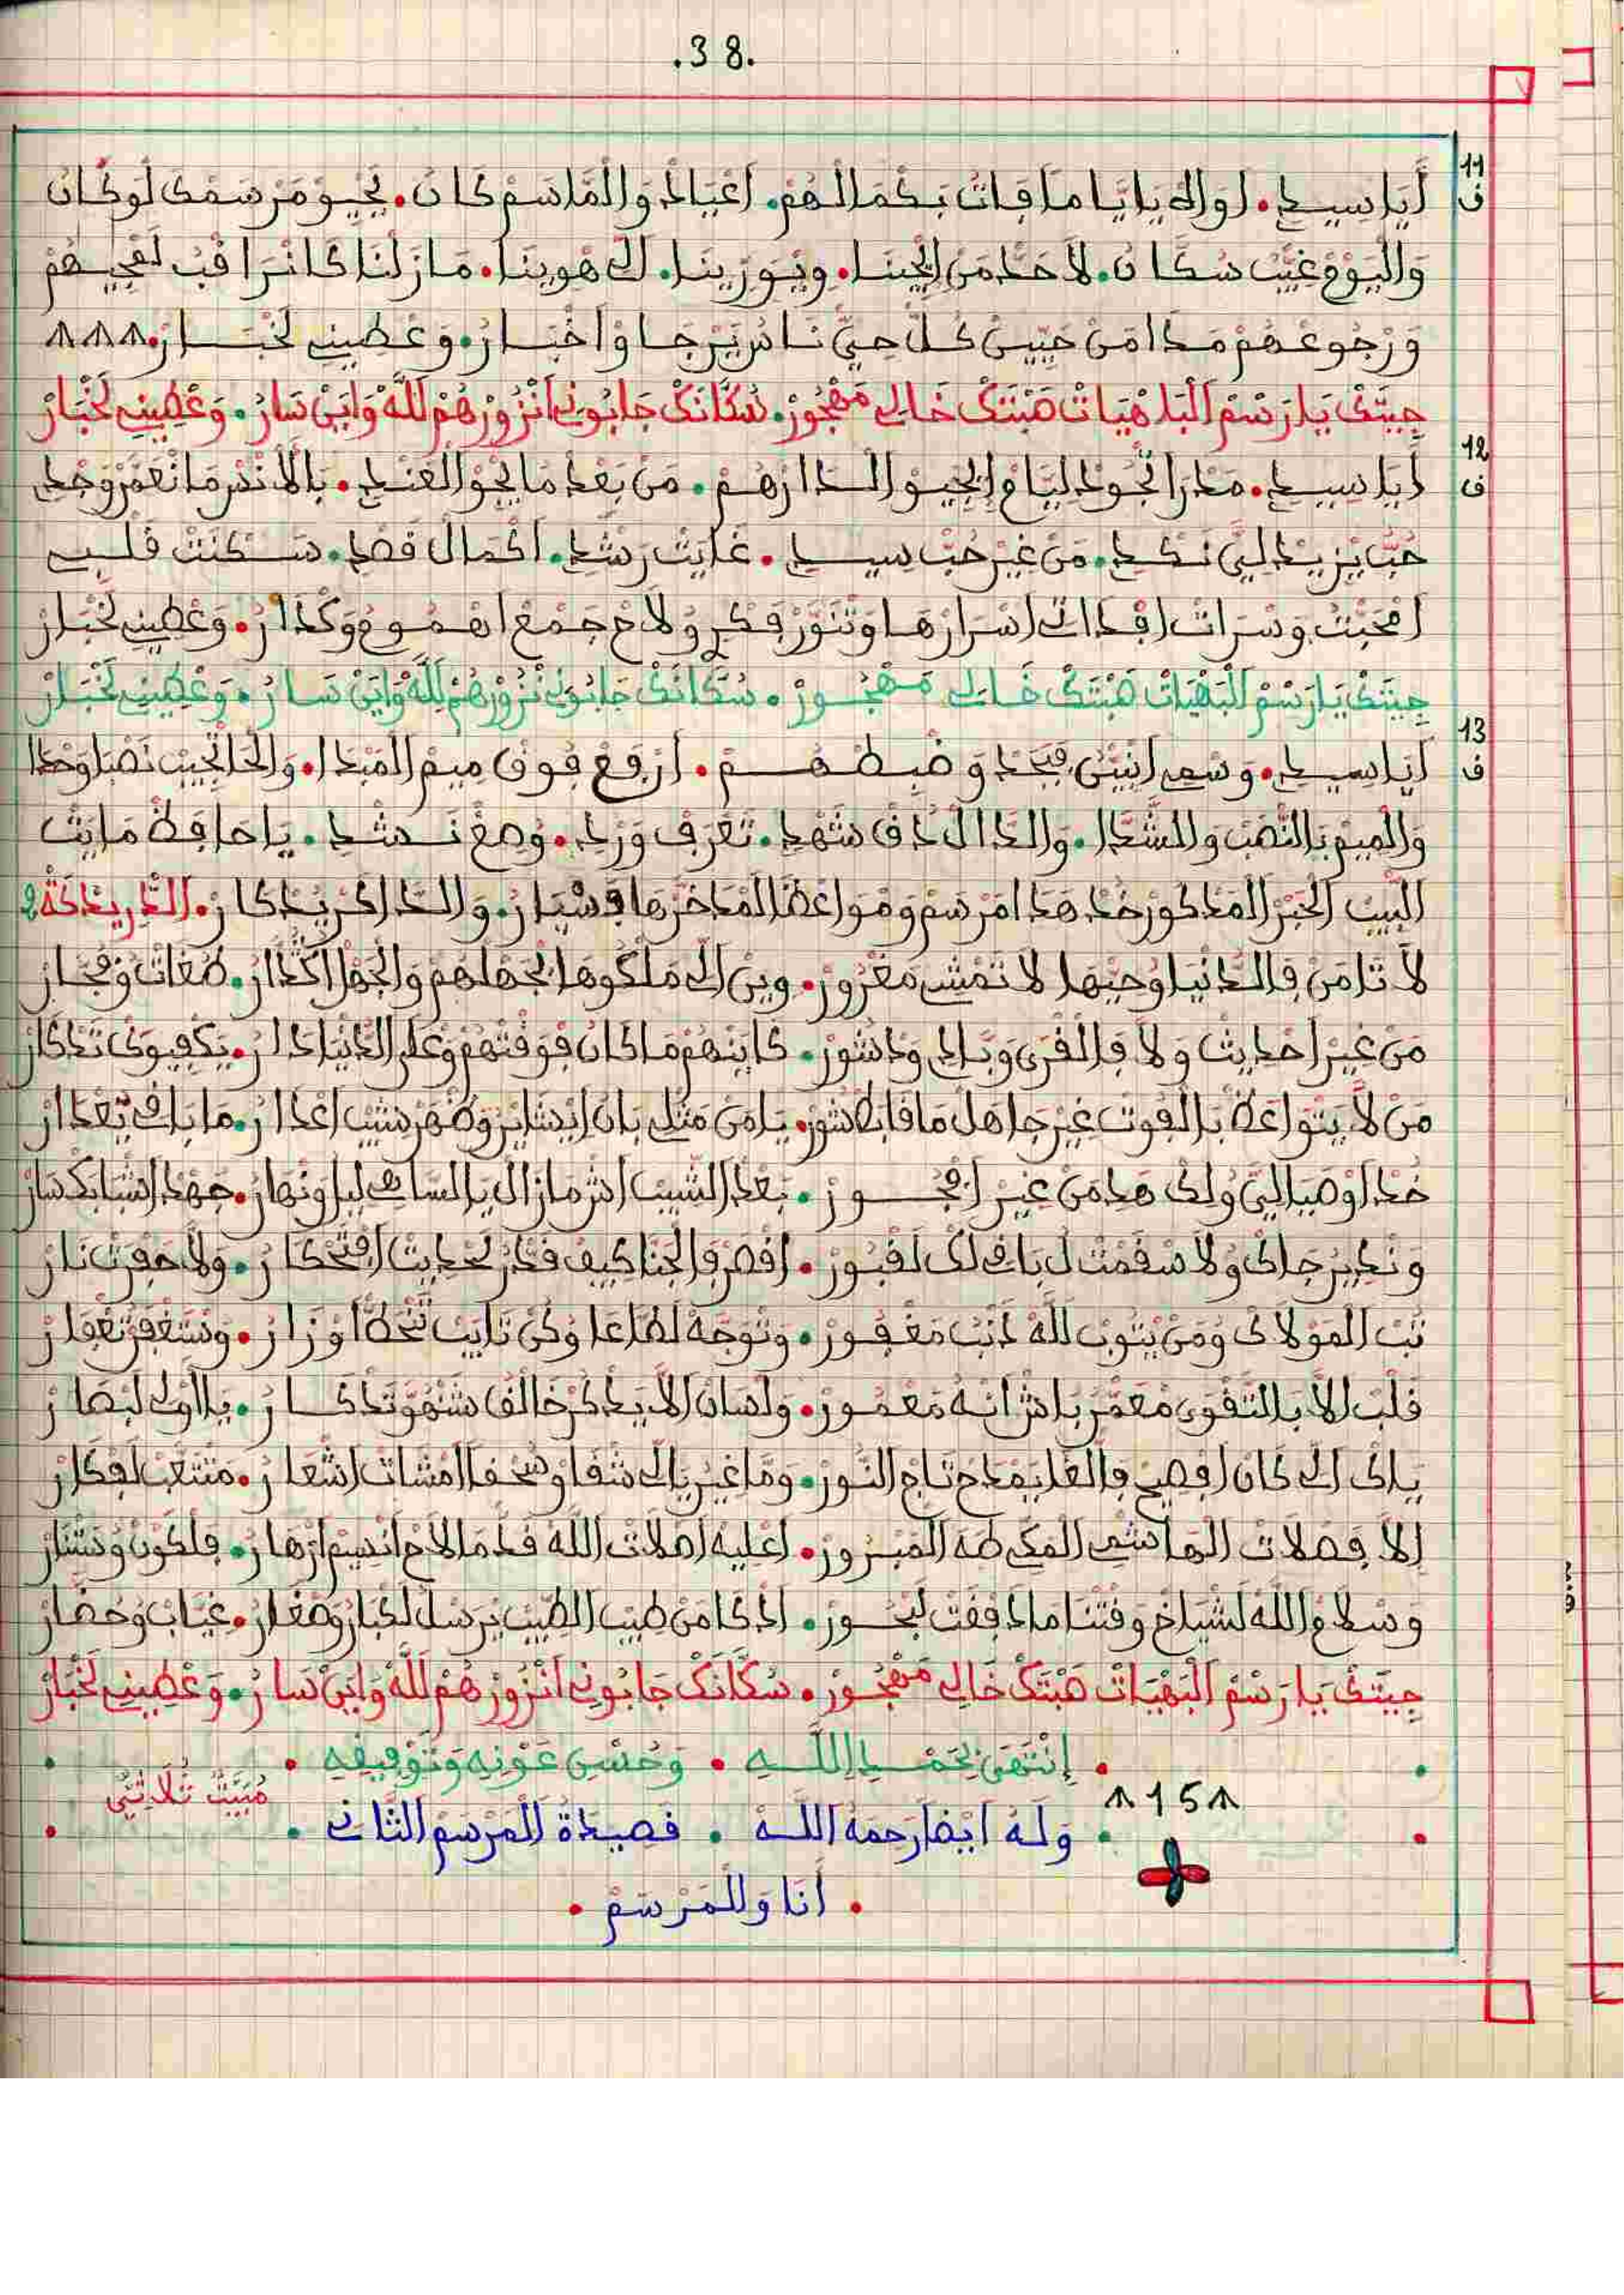 .38.
11
ف
أَيَا سيدي. لو الي يايّاما فات بكمالهم. اعياد والما سم كان. يحيو مرسمك لو كان
واليوم غيب سكان. لا حد من الجينا. ويورينا. الي هوينا. مازلنا كا نراقب لمجيهم
ورجوعهم مدا من حبيب كل حي ناس يرجاو اخبار. وعطيني لخبار.
جيتك يا رسم البلاهيات هبتك خالي مهجور. سكانك جاوبوني انزورهم لله واين سار. وعطيني لخبار
12
ف
أيا سيدي. من بعد ما يحو العندي. بالاندر ما نعمر وحدي
حب يزيد ليّ نكدي. من غير حب سيدي. غايت رشدي. اكمال قصدي. سكنت قلبي
امحبت وسرات افداتي اسرارها وتنور فكري ولاح جمع اهموم وكدار. وعطيني لخبار
جيتك يا رسم البهيات هبتك خالي مهجور. سكانك جاوبوني نزورهم لله واين سار. وعطيني لخبار
13
ف
أيا سيدي. وسمي انبيّن فبجد وضبطهم. ارفع فوق ميم المبدا. والحا تجيب نصبا وحدا
والميم بالنصب والشدا. والدال داق شهدي. تعرف وردي. وصغ نشدي. يا حافظ مايت
البيت الخبر المذكور خد هدا مرسم ومواعظ المدخرها فسيار. والدا كريدكار. الدريدكة 2
لا تامن فالدنيا وحبها لا تمشي مغرور. وين الي ملكوها بجهلهم والجهل اكدار. طغات وفجار
من غير احديث ولا فالقرى وبادي ودشور. كاينهم ما كان فوقتهم وعلى الدنيا دار. يكفيوك تدكار
من لا يتواعظ بالموت غير جاهل ما فاطشور. يا من مثلي بان ابشاير وظهر شيب اعدار. ما باقي تعدار
خد اوصيا لي ولك هد من غير افجور. بعد الشيب اش مازال يا الساهي ليل ونهار. جهد اشبابك سار
وندير جاك ولا سقمت ل باقي لك لقبور. اقصر فالجنا كيف قدر لحديث افتحكار. ولا حفرت نار
تب المولاك ومن يتوب لله دنب مغفور. وتوجه لطاعا وكن تايب تنحط اوزار. ونستغفر تغفار
قلب الا بالتقوى معمر باش انه معمور. ولسان الا يدكر خالق شنهو تدكار. يا اولي لبصار
ياك الي كان افصيح فالغا يمدح تاج النور. وما غير يالي شفا وشحفا امشات اشعار. متتعب لفكار
الا فصلات الهاشمي المكي طه المبرور. اعليه اصلات الله قد مالاح انسيم ازهار. فلكون ونتشار
وسلام الله لشياخ وقتنا ما دفقت لبحور. ادكا من طيب الطيب يرسل لكبار وصغار. غياب وحضار
جيتك يا رسم البهيات هبتك خالي مهجور. سكانك جاوبوني انزورهم لله واين سار. وعطيني لخبار
. إنتهى بحمد الله . وحسن عونه وتوفيقه .
15
مبيت ثلاثي
. وله ايضا رحمه الله . قصيدة المرسم الثاني .
. أنا وللمرسم .